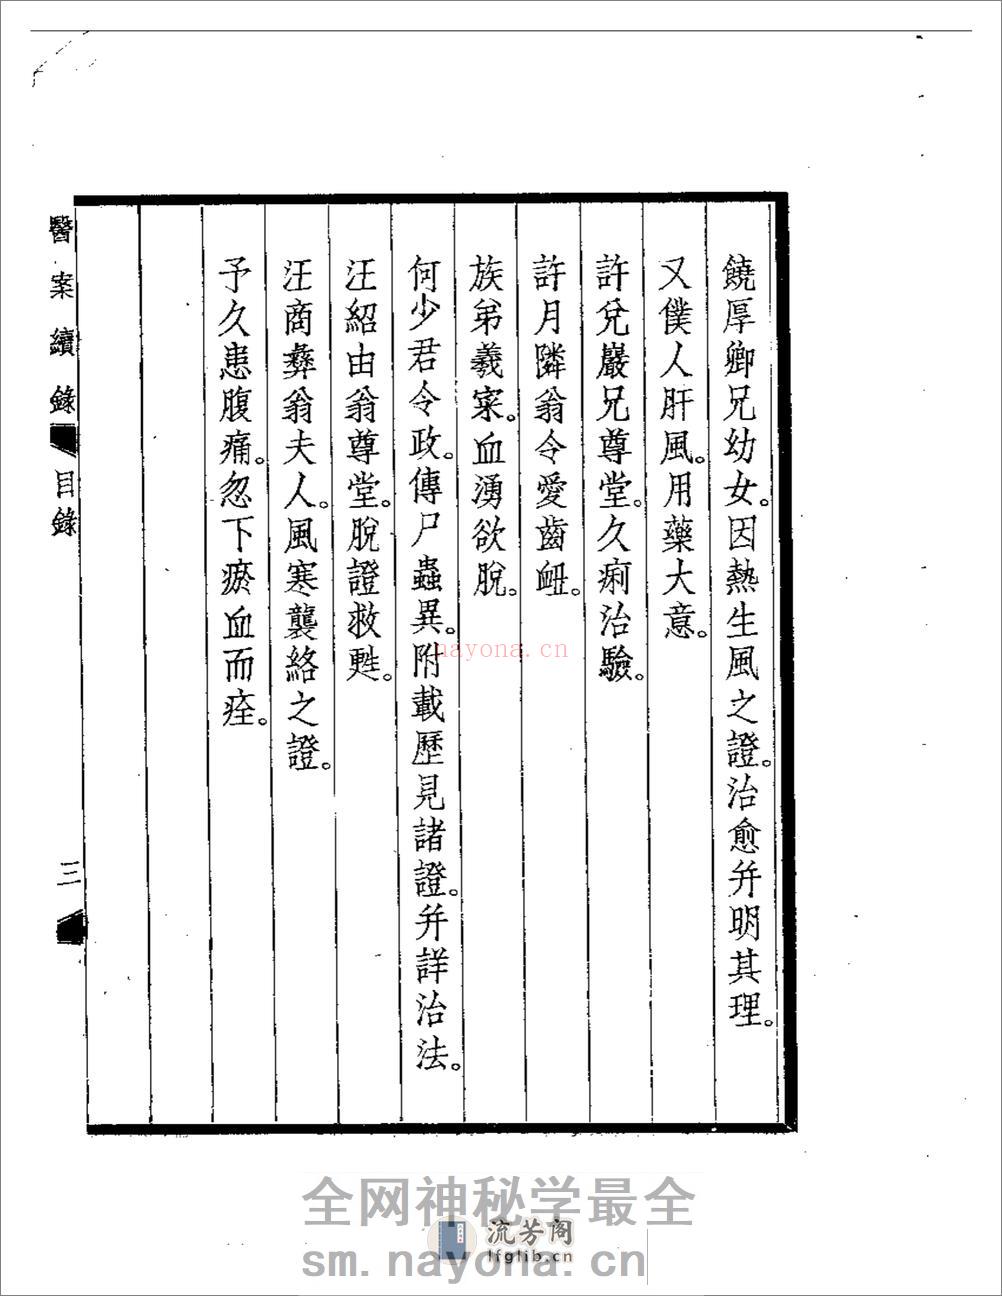 饒厚卿兄幼女。因熱生風之證。治愈并明其理。
又僕人肝風。用藥大意。
許兌巖兄尊堂。久痢治驗。
許月隣翁令愛齒衄。
族弟羲寀。血湧欲脫。
何少君令政。傳尸蟲異。附載歷見諸證。并詳治法。
汪紹由翁尊堂。脫證救甦。
汪商彝翁夫人。風寒襲絡之證。
予久患腹痛。忽下瘀血而痊。
醫案續錄 目錄 三
nayona.cn
全网神秘学最全
流芳阁
lfglib.cn
sm.nayona.cn